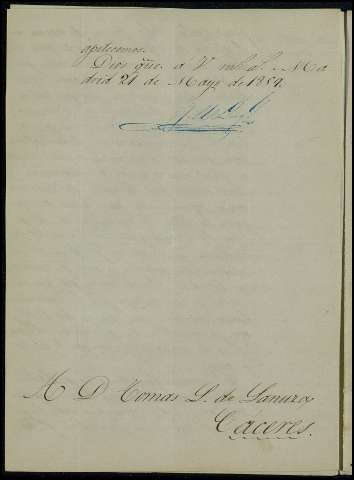 aplicemos.
Dios gue. a V. ms. as. Ma
drid 21 de Mayo de 1884.
D Tomas L. de Sanurox
Cáceres.